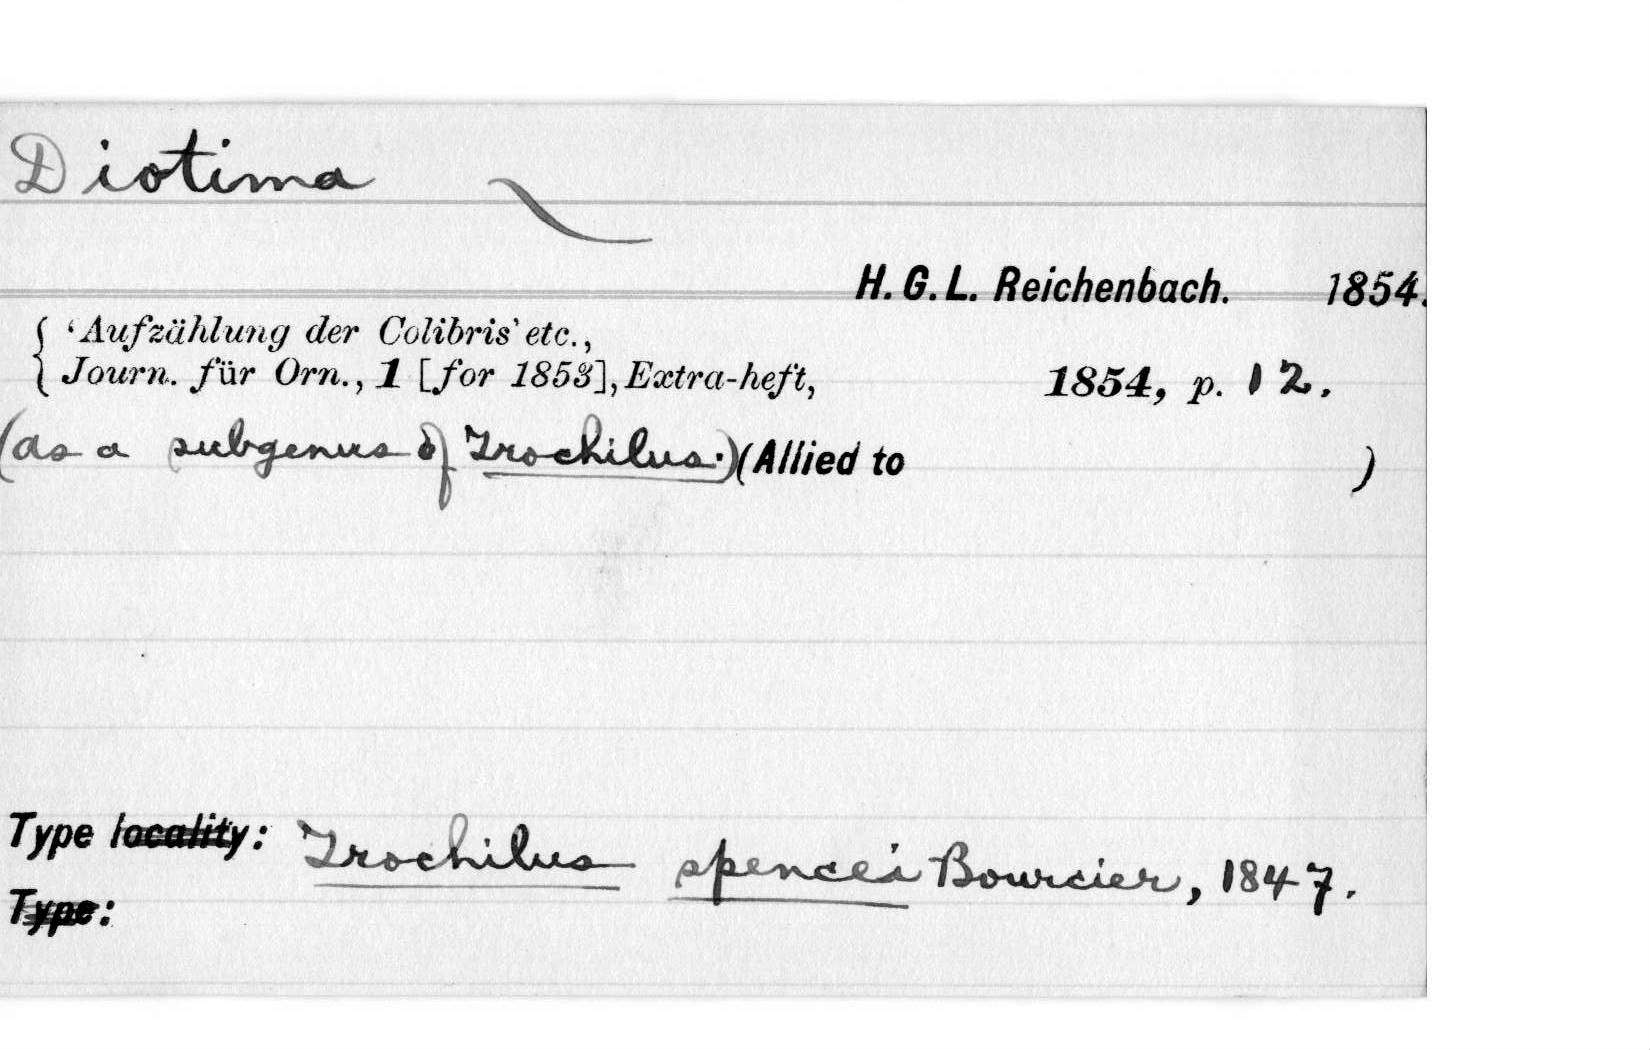 Diotima
H. G. L. Reichenbach. 1854.
'Aufzählung der Colibris' etc.,
Journ. für Orn., 1 [for 1853], Extra-heft, 1854, p. 12.
(as a subgenus of Trochilus.) (Allied to )
Type locality: Trochilus spencei Bourcier, 1847.
Type: